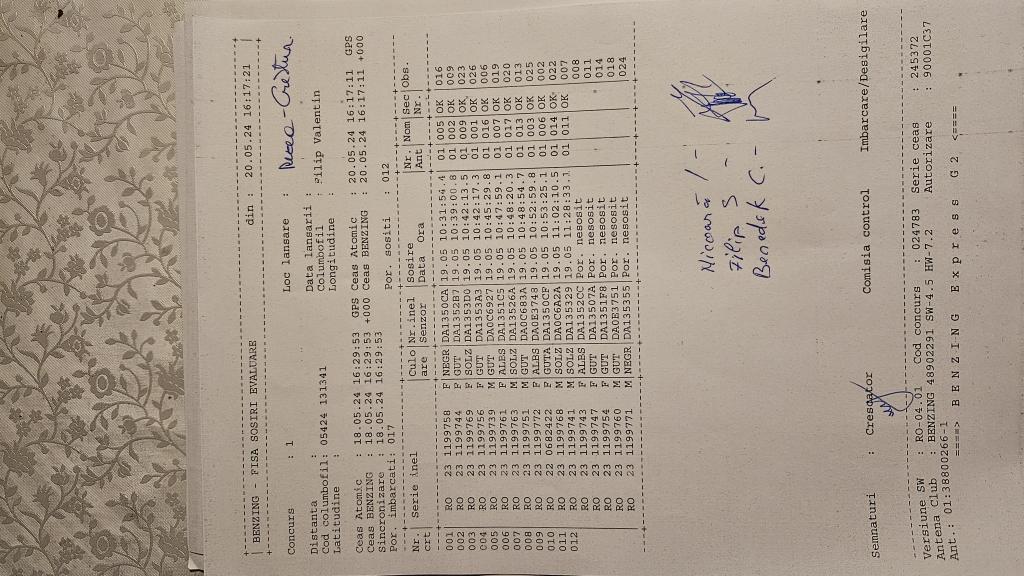 BENZING - FISA SOSIRI EVALUARE din : 20.05.24 16:17:21
Concurs : 1 Loc lansare :
Distanta : Data lansarii :
Cod columbofil: 05424 131341 Columbofil : Filip Valentin
Latitudine : Longitudine :
Ceas Atomic : 18.05.24 16:29:53 GPS Ceas Atomic : 20.05.24 16:17:11 GPS
Ceas BENZING : 18.05.24 16:29:53 +000 Ceas BENZING : 20.05.24 16:17:11 +000
Sincronizare : 18.05.24 16:29:53
Por. imbarcati: 017 Por. sositi : 012
Nr. | Serie inel |Culo|Nr.inel |Sosire |Nr. |Nom|Sec|Obs.
crt |are |Senzor |Data Ora |Ant |Nr.
001 RO 23 1199758 F NEGR DA1350CA 19.05 10:31:54.4 01 005 OK 016
002 RO 23 1199744 F GUT DA1352B7 19.05 10:39:00.8 01 002 OK 009
003 RO 23 1199769 F SOLZ DA1353D0 19.05 10:42:13.5 01 009 OK 023
004 RO 23 1199756 F GUT DA1353A3 19.05 10:42:17.3 01 001 OK 026
005 RO 23 1199739 M GUT DA0C6927 19.05 10:45:29.8 01 016 OK 006
006 RO 23 1199761 F ALBS DA1351C5 19.05 10:47:59.1 01 007 OK 019
007 RO 23 1199763 M SOLZ DA13526A 19.05 10:48:20.3 01 017 OK 020
008 RO 23 1199751 M GUT DA0C683A 19.05 10:48:54.7 01 013 OK 013
009 RO 23 1199772 F ALBS DA0E3748 19.05 10:52:59.8 01 003 OK 025
010 RO 22 0682422 F GUTA DA1350CF 19.05 10:53:25.1 01 006 OK 002
011 RO 23 1199768 M SOLZ DA0C6A2A 19.05 11:02:10.5 01 014 OK 022
012 RO 23 1199741 M SOLZ DA135329 19.05 11:28:33.1 01 011 OK 007
RO 23 1199743 F ALBS DA1352CC Por. nesosit 008
RO 23 1199747 F GUT DA13507A Por. nesosit 011
RO 23 1199754 M GUT DA1351F8 Por. nesosit 014
RO 23 1199760 M GUT DA0E3751 Por. nesosit 018
RO 23 1199771 M NEGR DA135355 Por. nesosit 024
Nicoară I -
Filip S -
Benedek C. -
Semnaturi : Crescator Comisia control Imbarcare/Desigilare
Versiune SW : RO-04.01 Cod concurs : 024783 Serie ceas : 245372
Antena Club : BENZING 48902291 SW-4.5 HW-7.2 Autorizare : 90001C37
Ant.: 01:38800266-1
===> B E N Z I N G E x p r e s s G 2 <====